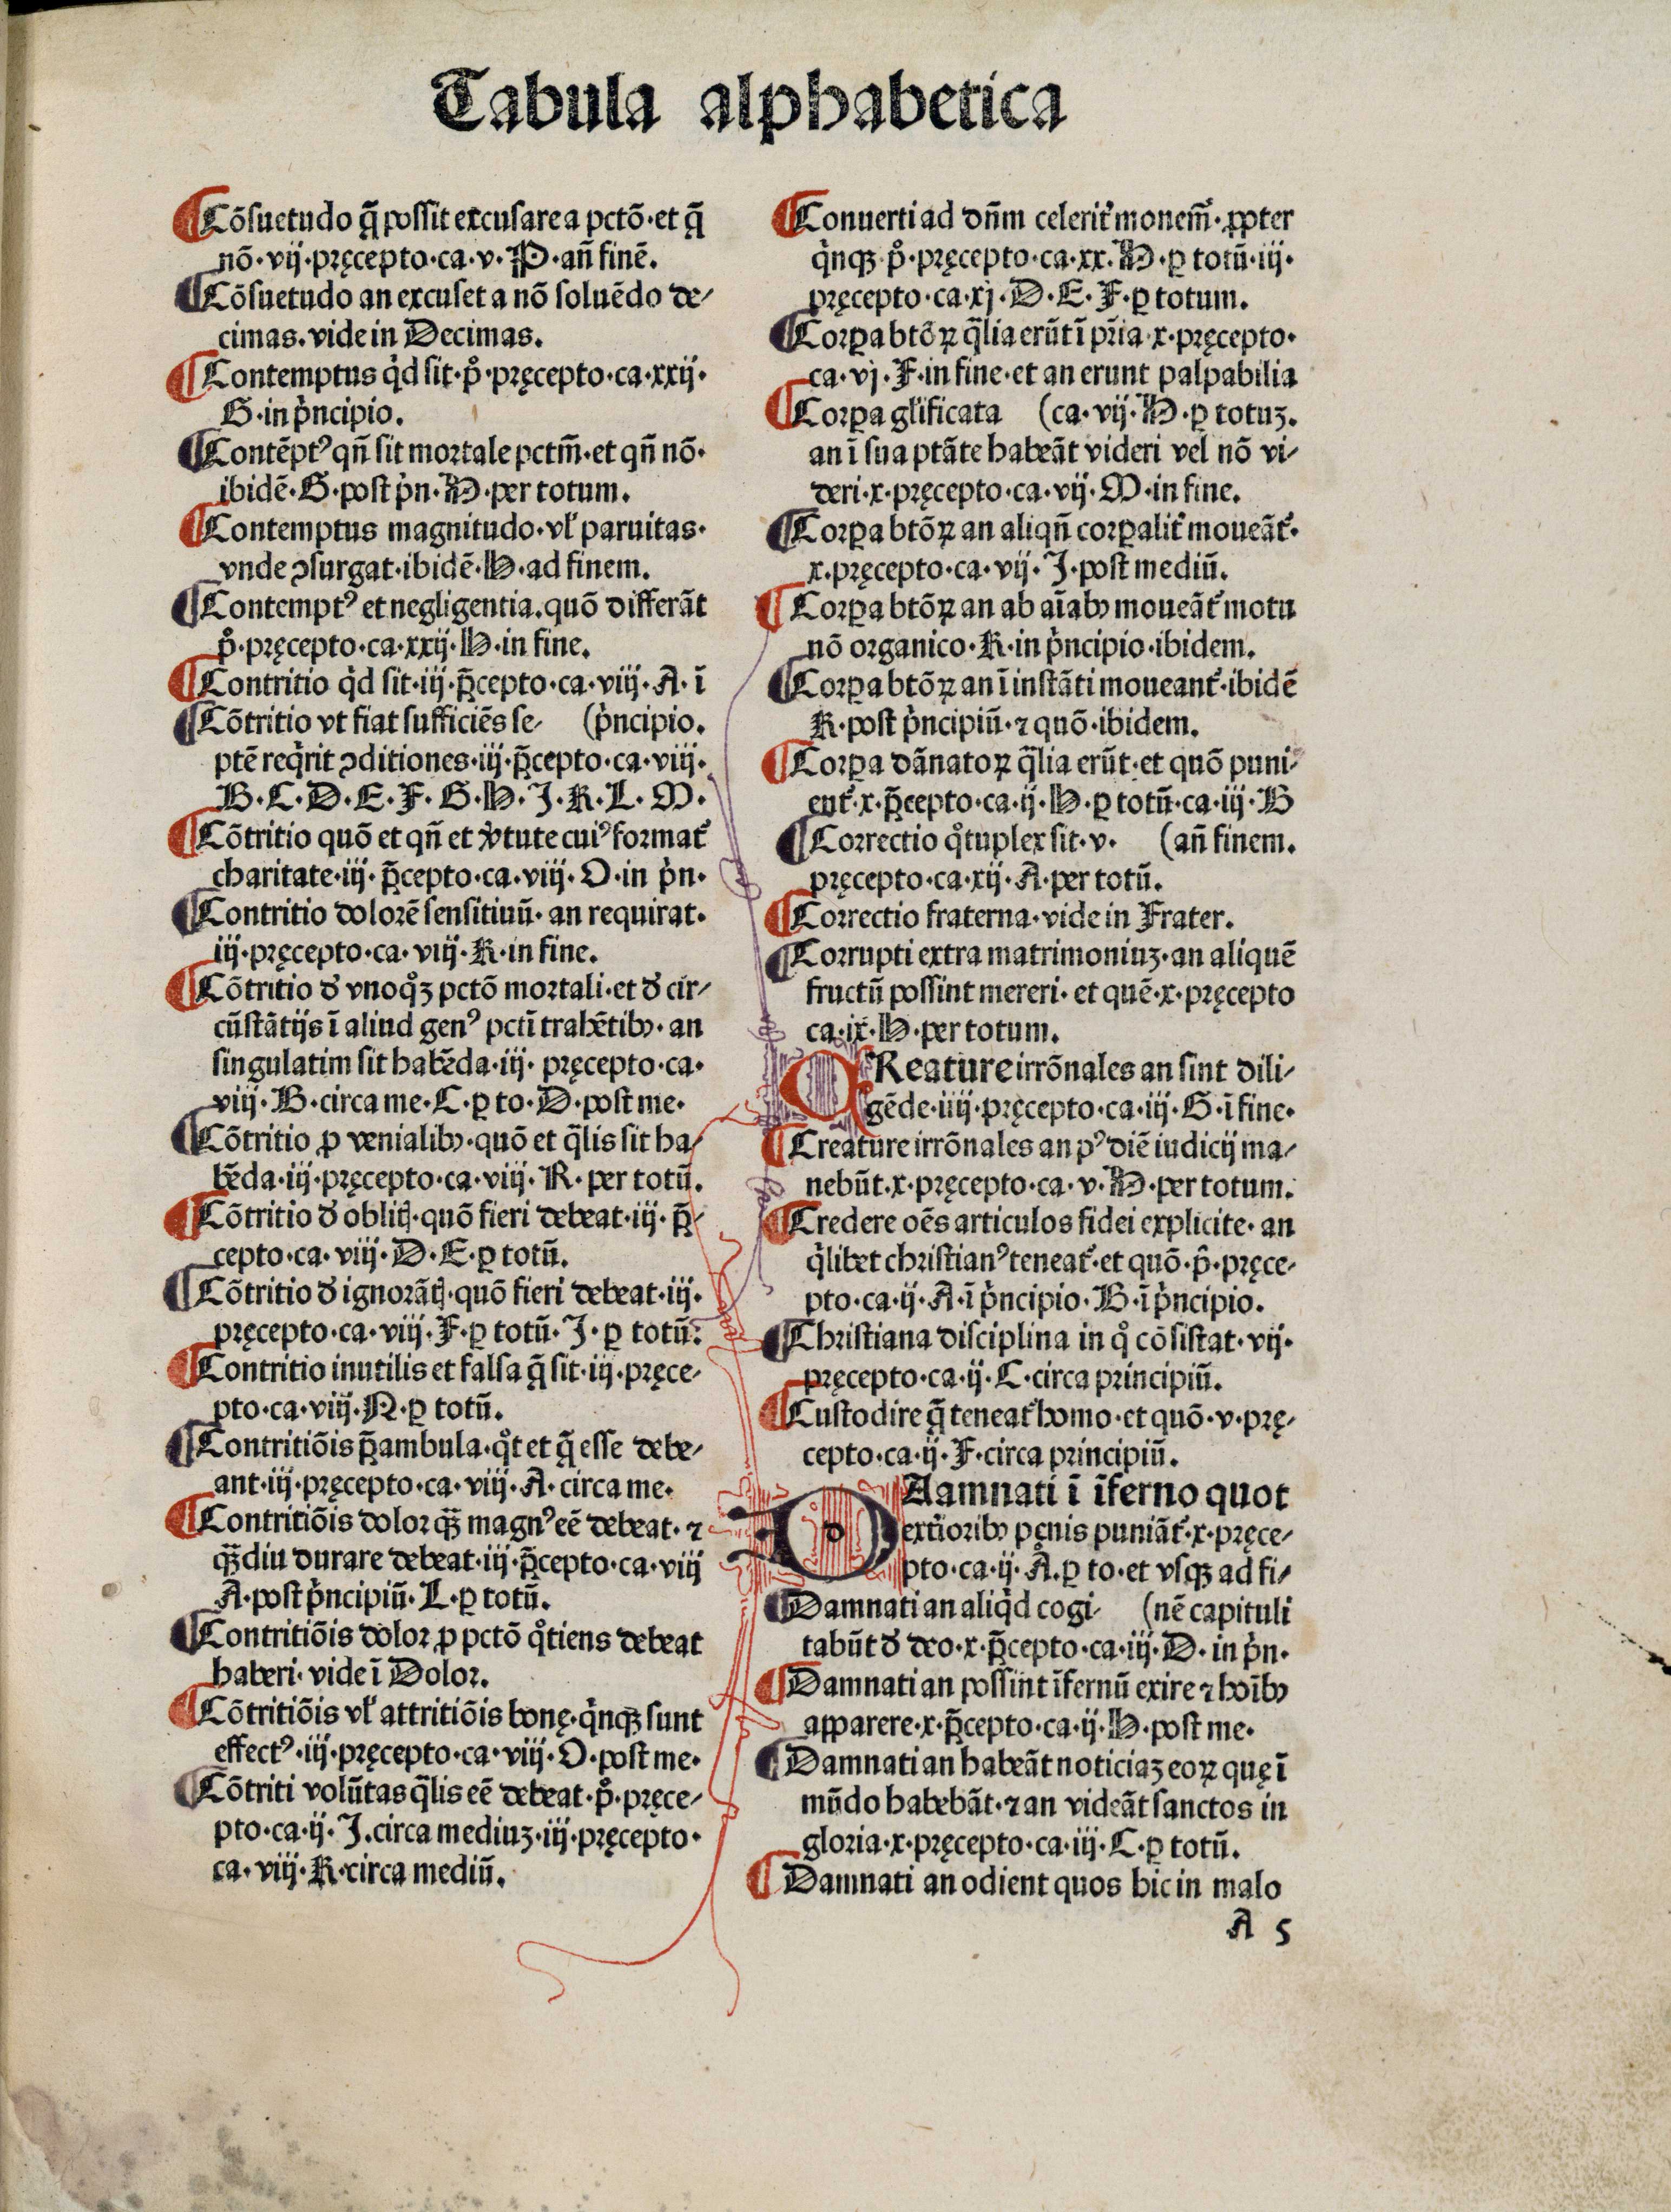 Tabula alphabetica
¶Cōsuetudo q̄ possit excusare a pctō·et q̄
nō·vij·pręcepto·ca·v·P·an̄ finē.
¶Cōsuetudo an excuset a nō soluēdo de⸗
cimas.vide in Decimas.
¶Contemptus qͥd sit·pͦ·pręcepto·ca·xxij·
G·in pͥncipio.
¶Contēptꝰ qn̄ sit mortale pctm̄·et qn̄ nō·
ibidē·G·post pͥn·H·per totum.
¶Contemptus magnitudo·vl̛ paruitas·
vnde ꝯsurgat·ibidē·H·ad finem.
¶Contemptꝰ et negligentia.quō differāt
pͦ·pręcepto·ca·xxij·H·in fine.
¶Contritio qͥd sit·iij·p̄cepto·ca·viij·A·ī
¶Cōtritio vt fiat sufficiēs se⸗ (pͥncipio.
ptē reqͥrit ꝯditiones·iij·p̄cepto·ca·viij·
B·C·D·E·F·G·H·J·K·L·M·
¶Cōtritio quō et qn̄ et v̛tute cuiꝰ format᷑
charitate·iij·p̄cepto·ca·viij·O·in pͥn·
¶Contritio dolorē sensitiuū·an requirat·
iij·pręcepto·ca·viij·K·in fine.
¶Cōtritio ď vnoqͦꝫ pctō mortali·et ď cir⸗
cūstātijs ī aliud genꝰ pcti trahētibꝰ·an
singulatim sit habēda·iij·pręcepto·ca·
viij·B·circa me·C·ꝑ to·D·post me·
¶Cōtritio ꝓ venialibꝰ·quō et q̄lis sit ha⸗
bēda·iij·pręcepto·ca·viij·R·per totū.
¶Cōtritio ď oblitꝭ·quō fieri debeat·iij·p̄⸗
cepto·ca·viij·D·E·ꝑ totū.
¶Cōtritio ď ignorātꝭ·quō fieri debeat·iij·
pręcepto·ca·viij·F·ꝑ totū·J·ꝑ totū.
¶Contritio inutilis et falsa q̄ sit·iij·pręce⸗
pto·ca·viij·N·ꝑ totū.
¶Contritiōis p̄ambula·qͦt et q̄ esse debe⸗
ant·iij·pręcepto·ca·viij·A·circa me·
¶Contritiōis dolor qꝫ̄ magnꝰ eē debeat·⁊
qꝫ̄diu durare debeat·iij·p̄cepto·ca·viij
A·post pͥncipiū·L·ꝑ totū.
¶Contritiōis dolor ꝓ pctō qͦtiens debeat
haberi·vide ī Dolor.
¶Cōtritiōis vl̛ attritiōis bonę·qͥnqꝫ sunt
effectꝰ·iij·pręcepto·ca·viij·O·post me·
¶Cōtriti volūtas q̄lis eē debeat·pͦ·pręce⸗
pto·ca·ij·J.circa mediuꝫ·iij·pręcepto·
ca·viij·K·circa mediū.
¶Conuerti ad dn̄m celerit᷑ monem᷑·ꝓpter
qͥnqꝫ·pͦ·pręcepto·ca·xx·H·ꝑ totū·iij·
pręcepto·ca·xj·D·E·F·ꝑ totum.
¶Corꝑa btōꝝ q̄lia erūt ī pr̄ia·x·pręcepto·
ca·vj·F·in fine·et an erunt palpabilia
¶Corꝑa gl̛ificata (ca·vij·H·ꝑ totuꝫ.
an ī sua ptāte habeāt videri vel nō vi⸗
deri·x·pręcepto·ca·vij·M·in fine.
¶Corꝑa btōꝝ an aliqn̄ corꝑalit᷑ moueāt᷑·
x·pręcepto·ca·vij·J·post mediū.
¶Corꝑa btōꝝ an ab aīabꝰ moueāt᷑ motu
nō organico·K·in pͥncipio·ibidem.
¶Corꝑa btōꝝ an ī instāti moueant᷑·ibidē
K·post pͥncipiū·⁊ quō·ibidem.
¶Corꝑa dānatoꝝ q̄lia erūt·et quō puni⸗
ent᷑·x·p̄cepto·ca·ij·H·ꝑ totū·ca·iij·B
¶Correctio qͦtuplex sit·v· (an̄ finem.
pręcepto·ca·xij·A·per totū.
¶Correctio fraterna·vide in Frater.
¶Corrupti extra matrimoniuꝫ·an aliquē
fructū possint mereri·et quē·x·pręcepto
ca·ix·H·per totum.
CReature irrōnales an sint dili⸗
gēde·iiij·pręcepto·ca·iij·G·ī fine·
¶Creature irrōnales an pꝰ diē iudicij ma⸗
nebūt·x·pręcepto·ca·v·H·per totum.
¶Credere oēs articulos fidei explicite·an
qͥlibet christianꝰ teneat᷑·et quō·pͦ·pręce⸗
pto·ca·ij·A·ī pͥncipio·B·ī pͥncipio.
¶Christiana disciplina in qͦ cōsistat·vij·
pręcepto·ca·ij·C·circa principiū.
¶Custodire q̄ teneat᷑ homo·et quō·v·prę⸗
cepto·ca·ij·F·circa principiū.
DAamnati ī īferno quot
exterioribꝰ penis puniāt᷑·x·pręce⸗
pto·ca·ij·A·ꝑ to·et vsqꝫ ad fi⸗
¶Damnati an aliqͥd cogi⸗ (nē capituli
tabūt ď deo·x·p̄cepto·ca·iij·D·in pͥn·
¶Damnati an possint īfernū exire ⁊ hoībꝰ
apparere·x·p̄cepto·ca·ij·H·post me·
¶Damnati an habeāt noticiaꝫ eoꝝ quę ī
mūdo habebāt·⁊ an videāt sanctos in
gloria·x·pręcepto·ca·iij·C·ꝑ totū.
¶Damnati an odient quos hic in malo
A 5